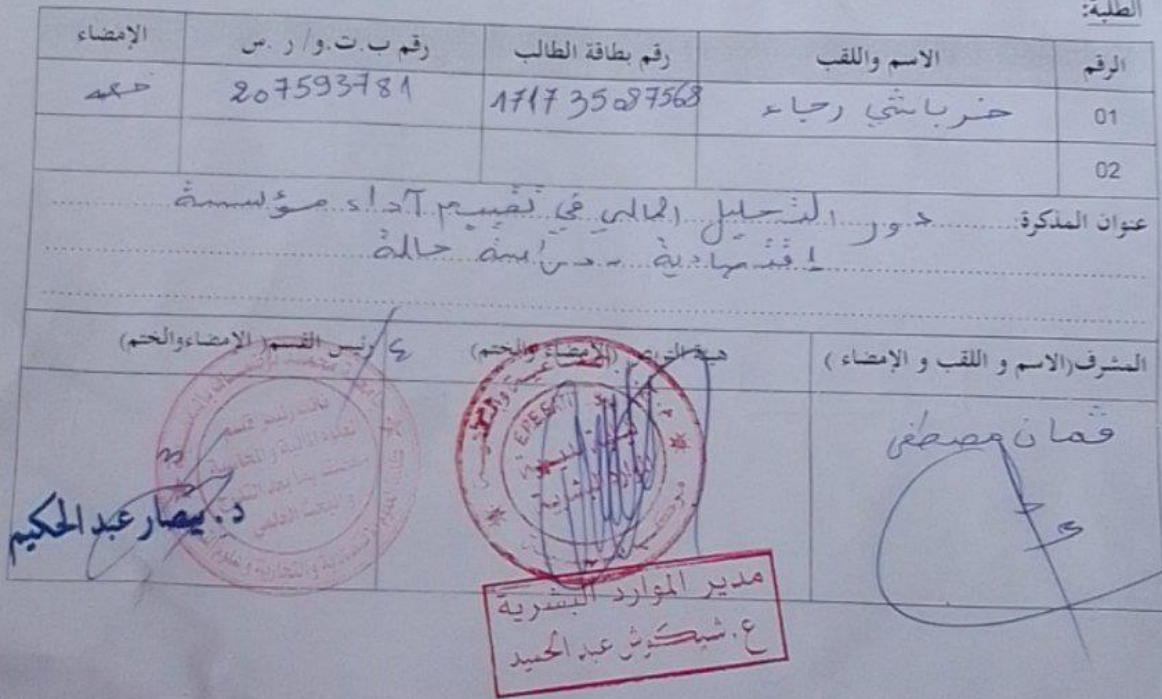 الطلبة:
الرقم الاسم واللقب رقم بطاقة الطالب رقم ب.ت.و/ ر.س الإمضاء
01 خرباشي رجاء 171735087568 207593781
02
عنوان المذكرة: دور التحليل المالي في تقييم آداء مؤسسة
اقتصادية - دراسة حالة
المشرف(الاسم و اللقب و الإمضاء ) هيئة التربص (الإمضاء والختم) رئيس القسم( الإمضاء والختم)
قمان مصطفى
نائب رئيس قسم
العلوم المالية و المحاسبية
د. بيصار عبد الحكيم
مدير الموارد البشرية
ع. شيكوش عبد الحميد